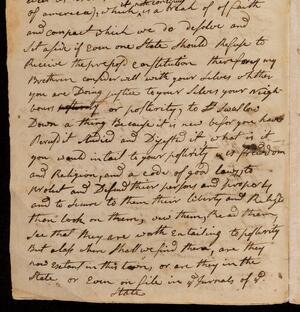 of america), which is a breach of of faith
and compact which we do desolve and
Set aside if Even one State Should Refuse to
Receive the propesd Constitution therefore my
Brethren consider well with your Selves whither
you are Doing justice to your Selves your neigh
bours or posturity, to Swallow
Down a thing Because it is new before you have
Perused it Studied and Dijested it what is it
you would intail to your posturity is it freedom
and Religion, and a code of good laws, to
protect and Defend their persons and property
and to Secure to them their liberty and Religion
then look on them, view them, Read them,
See that they are worth Entailing to posturity
But alass where Shall we find them, are they
now Extant in this town, or are they in the
State or Even on file in ye Jurnals of ye
State